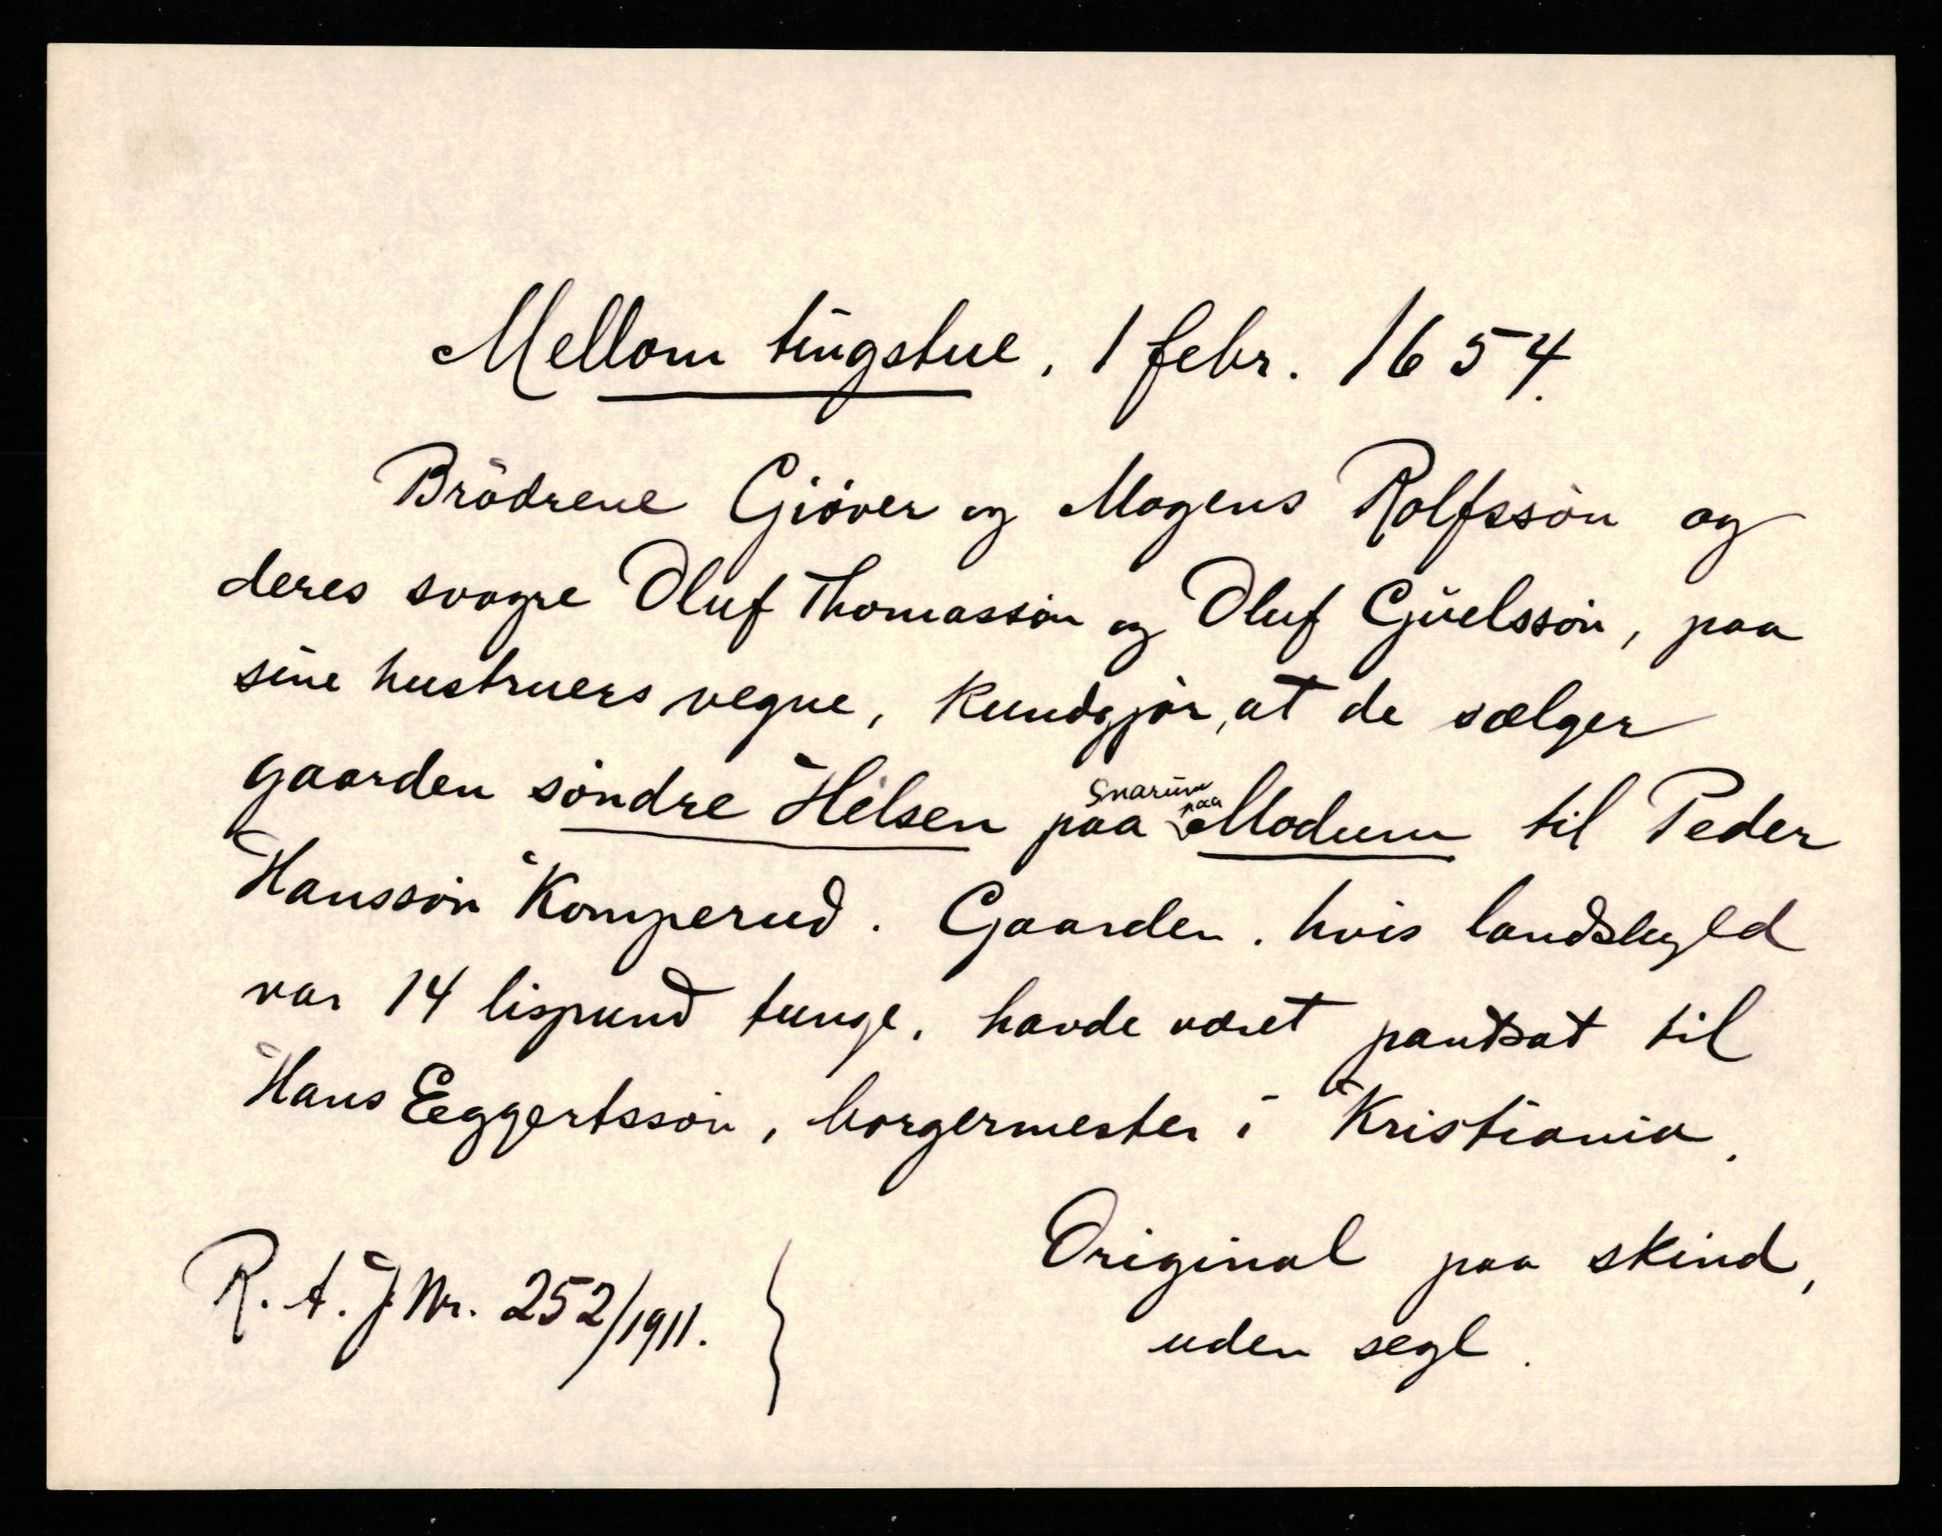 Mellom tingstue, 1 febr. 1654.
Brödrene Giöver og Mogens Rolfssön og
deres svogre Oluf Thomassön og Oluf Gúelssön, paa
sine hustruers vegne, kundgjör, at de sælger
gaarden söndre Hilsen paa Snarum paa Modum til Peder
Hanssön Komperud. Gaarden, hvis landskyld
var 14 lispund tunge, havde været pantsat til
Hans Eggertssön, borgermester i Kristiania.
Original paa skind,
uden segl.
R. A. J. Nr. 252/1911.